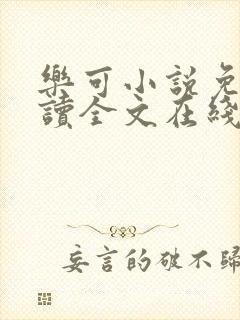 樂可小說免
讀全文在綫
妄言的破不歸